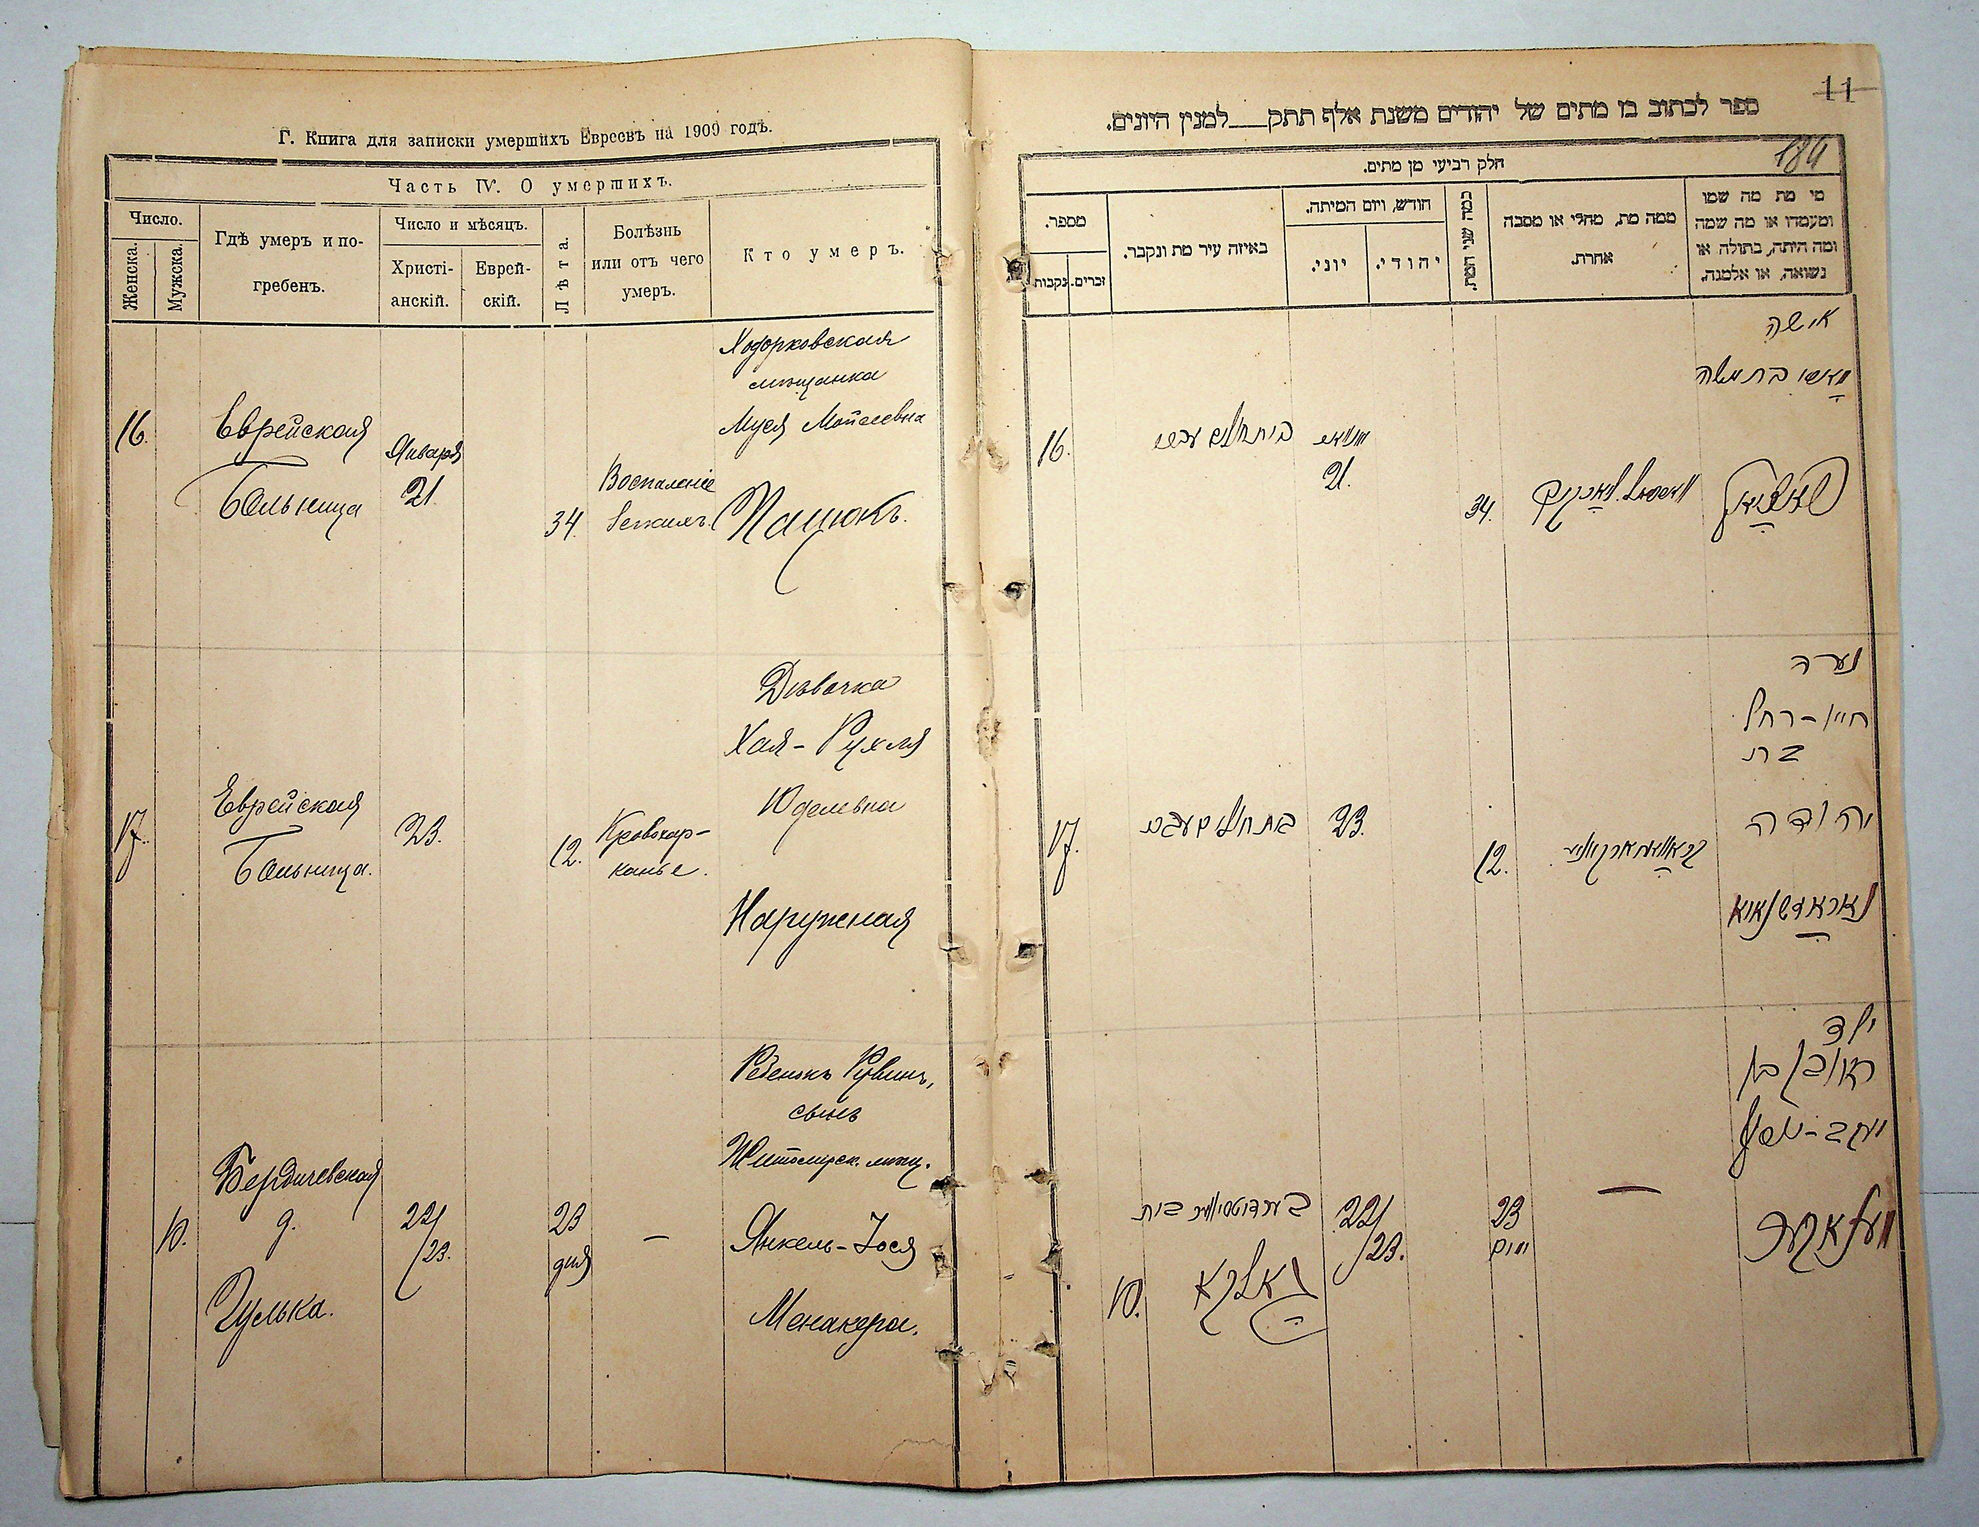 Г. Книга для записки умершихъ Евреевъ на 1909 годъ.
Часть IV. О умершихъ.
Число.
Женска.
Мужска.
Гдѣ умеръ и по-
гребенъ.
Число и мѣсяцъ.
Христі-
анскій.
Еврей-
скій.
Лѣта.
Болѣзнь
или отъ чего
умеръ.
Кто умеръ.
16.
Еврейская
Больница
Января
21.
34.
Воспаленіе
легкихъ.
Ходорковская
мѣщанка
Муся Мойсеевна
Пацюкъ.
17.
Еврейская
Больница.
23.
12.
Кровохар-
канье.
Дѣвочка
Хая-Рухля
Юделевна
Наружная
10.
Бердичевская
д.
Гулька.
22/
/23.
23
дня
—
Ребенокъ Рувинъ,
сынъ
Житомирск. мѣщ.
Янкель-Іося
Менакера.
11
ספר לכתוב בו מתים של יהודים משנת אלף תתק___למנין היונים.
184
חלק רביעי מן מתים.
מי מת מה שמו
ומעמדו או מה שמה
ומה היתה, בתולה או
נשואה, או אלמנה.
ממה מת, מחלי או מסבה
אחרת.
כמה שני המת.
חודש, ויום המיתה.
יהודי.
יוני.
באיזה עיר מת ונקבר.
מספר.
זכרים.
נקבות
אישה
בת משה
34.
21.
בית חולים
16.
נערה
חיי-רחל
בת
יהודה
12.
23.
17.
ילד
ראובן בן
יעקב-יוסף
—
23
ימים
22/
/23.
בית
גאלקא
10.